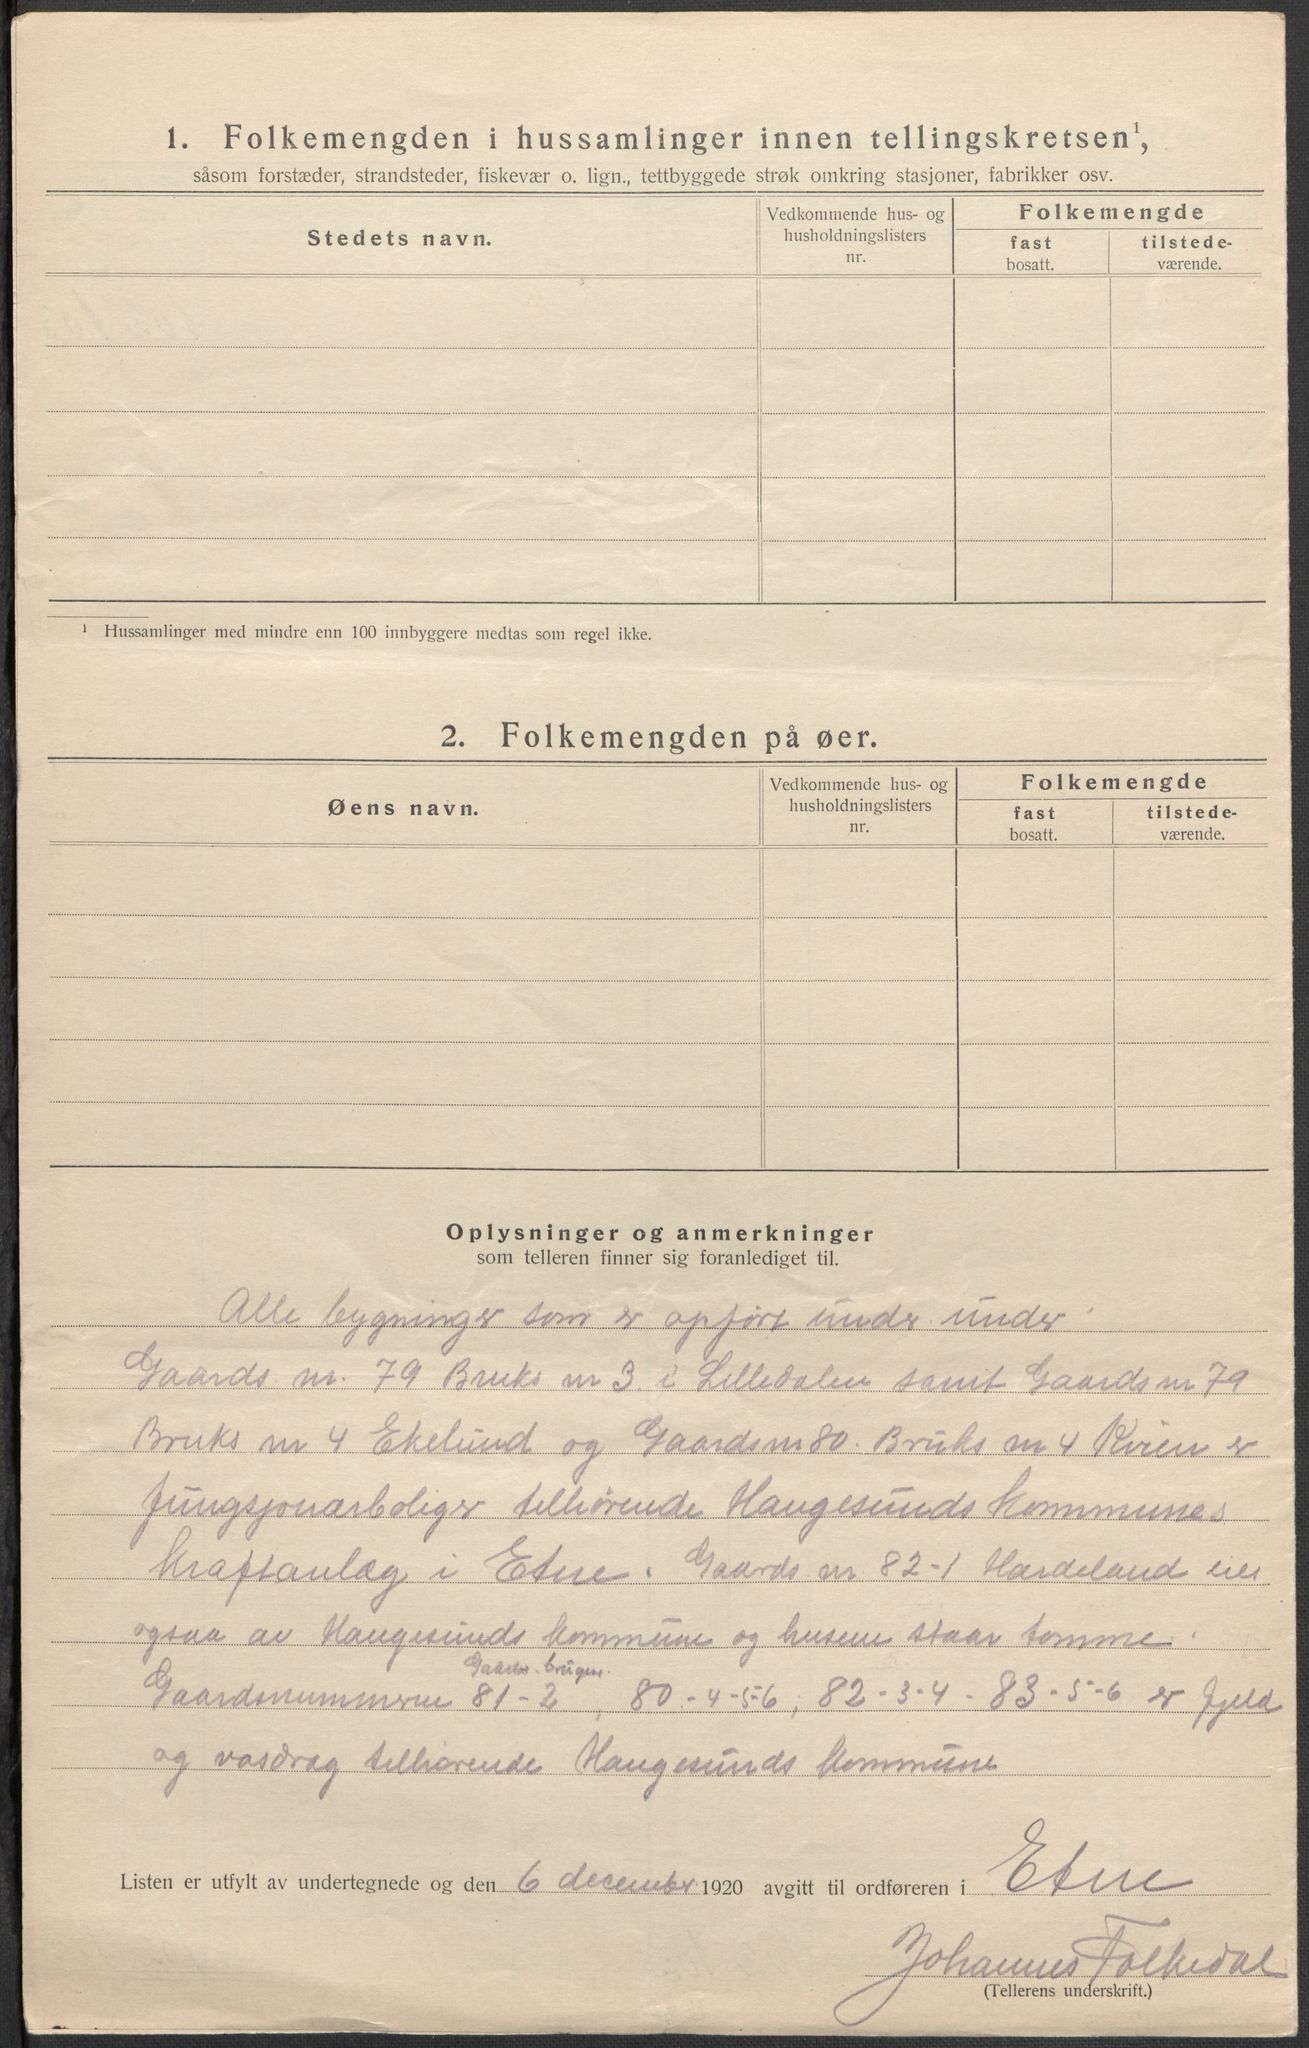 1. Folkemengden i hussamlinger innen tellingskretsen¹,
såsom forstæder, strandsteder, fiskevær o. lign., tettbyggede strøk omkring stasjoner, fabrikker osv.
Stedets navn.
Vedkommende hus- og
husholdningslisters
nr.
Folkemengde
fast
bosatt.
tilstede-
værende.
¹ Hussamlinger med mindre enn 100 innbyggere medtas som regel ikke.
2. Folkemengden på øer.
Øens navn.
Vedkommende hus- og
husholdningslisters
nr.
Folkemengde
fast
bosatt.
tilstede-
værende.
Oplysninger og anmerkninger
som telleren finner sig foranlediget til.
Alle bygninger som er opført under under
Gaards nr. 79 Bruks nr 3 i Lilledalen samt Gaards nr 79
Bruks nr 4 Ekelund og Gaards nr 80. Bruks nr 4 Kvien er
fungsjonærboliger tilhørende Haugesunds Kommunes
Kraftanlæg i Etne. Gaards nr 82-1 Hardeland eies
ogsaa av Haugesunds kommune og husene staar tomme.
Gaards- brugsnr.
Gaardsnummerne 81-2, 80-4-5-6, 82-3-4-83-5-6 er fjeld
og vasdrag tilhørende Haugesunds kommune
Listen er utfylt av undertegnede og den 6 december 1920 avgitt til ordføreren i Etne
Johannes Folkedal
(Tellerens underskrift.)